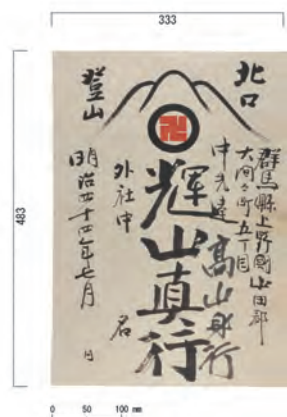 333
483
北口
登山
卍
群馬縣上野國山田郡
大間々町五丁目
中先達
輝山真行
外社中 名
明治四十四年七月 日
0 50 100 mm